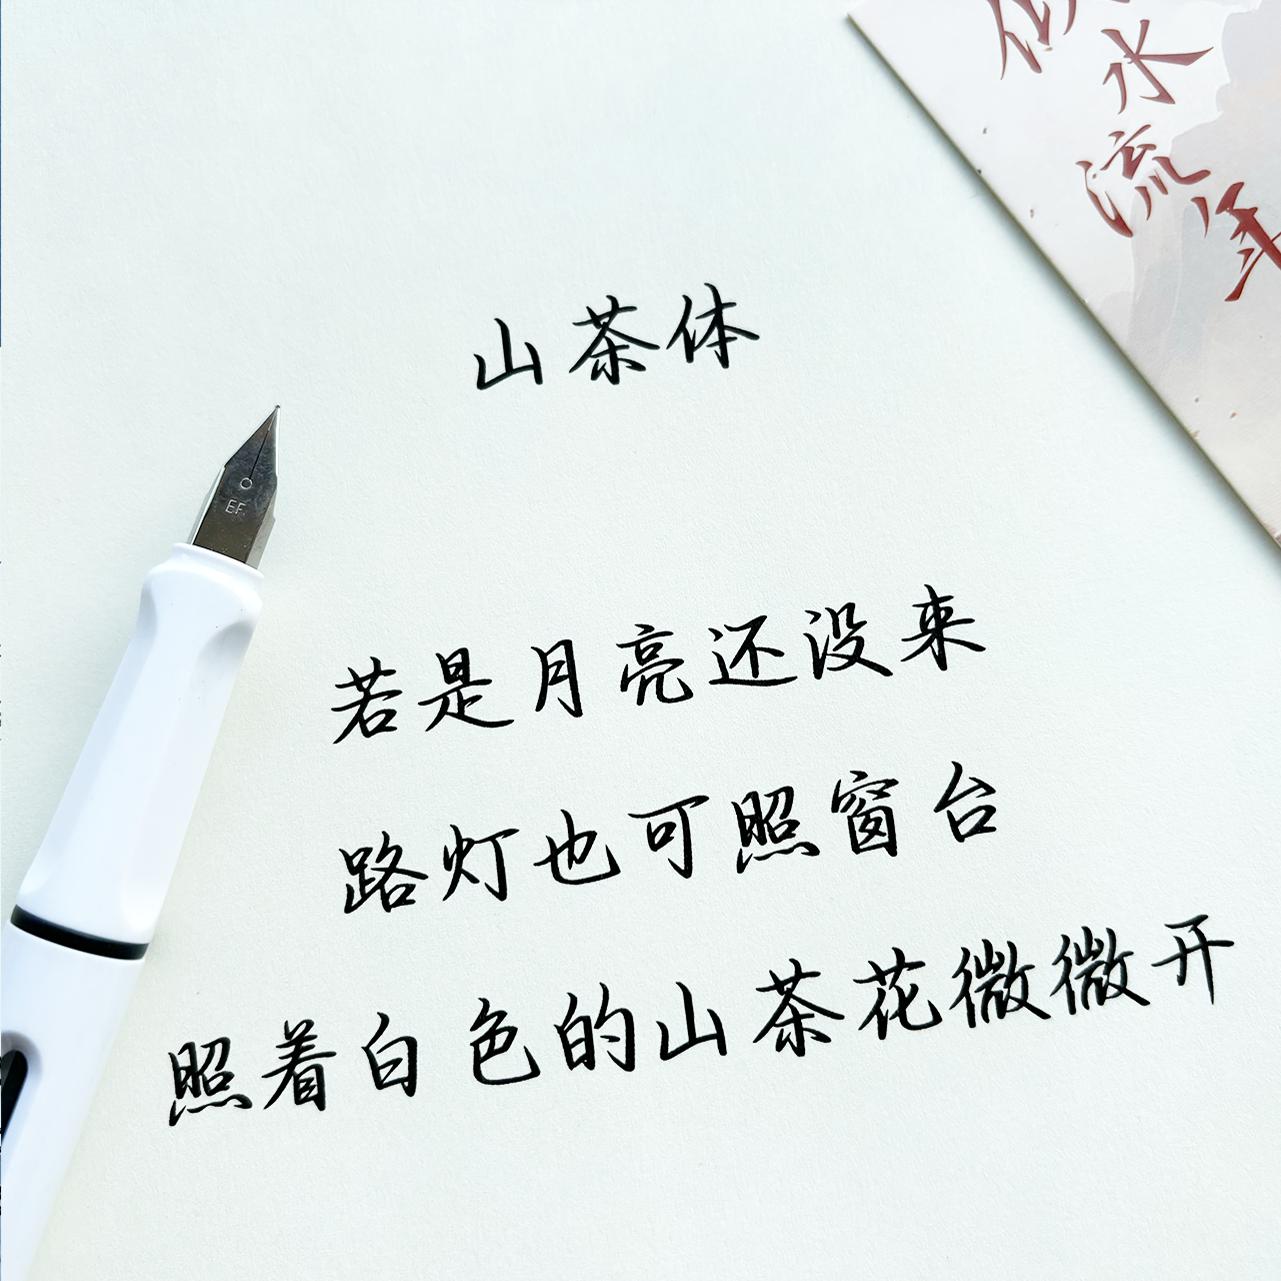 水
流
年
山茶体
EF
若是月亮还没来
路灯也可照窗台
照着白色的山茶花微微开